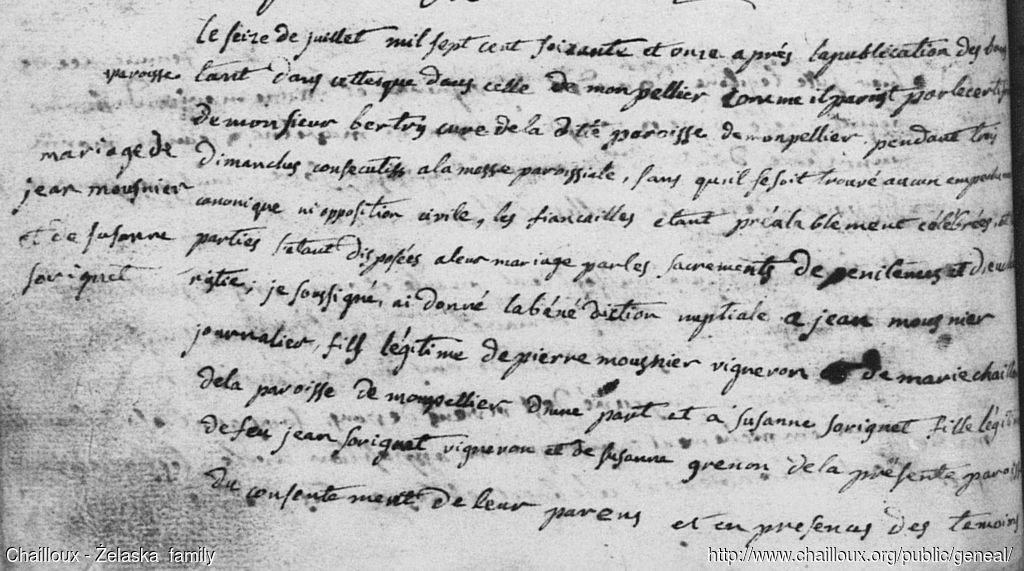 mariage de
jean mousnier
et de susanne
sorignet
le seize de juillet mil sept cent soixante et onze après la publication des bans
paroisse tant dans cette que dans celle de monpellier comme il paroit par le certif
de monsieur bertry curé de la dite paroisse de monpellier pendant trois
dimanches consecutifs a la messe paroissiale, sans qu'il se soit trouvé aucun
canonique ni opposition civile, les fiancailles etant préalablement célébrées, et
parties s'etant disposées a leur mariage par les sacrements de penitences et d'eucha
ristie, je soussigné, ai donné la bénédiction nuptiale a jean mousnier
journalier, fils légitime de pierre mousnier vigneron de marie chaillou
de la paroisse de monpellier d'une part et a susanne sorignet fille légitime
de feu jean sorignet vigneron et de susanne grenon de la présente paroisse
du consentement de leur parens et en presences des temoins
Chailloux - Żelaska family
http://www.chailloux.org/public/geneal/